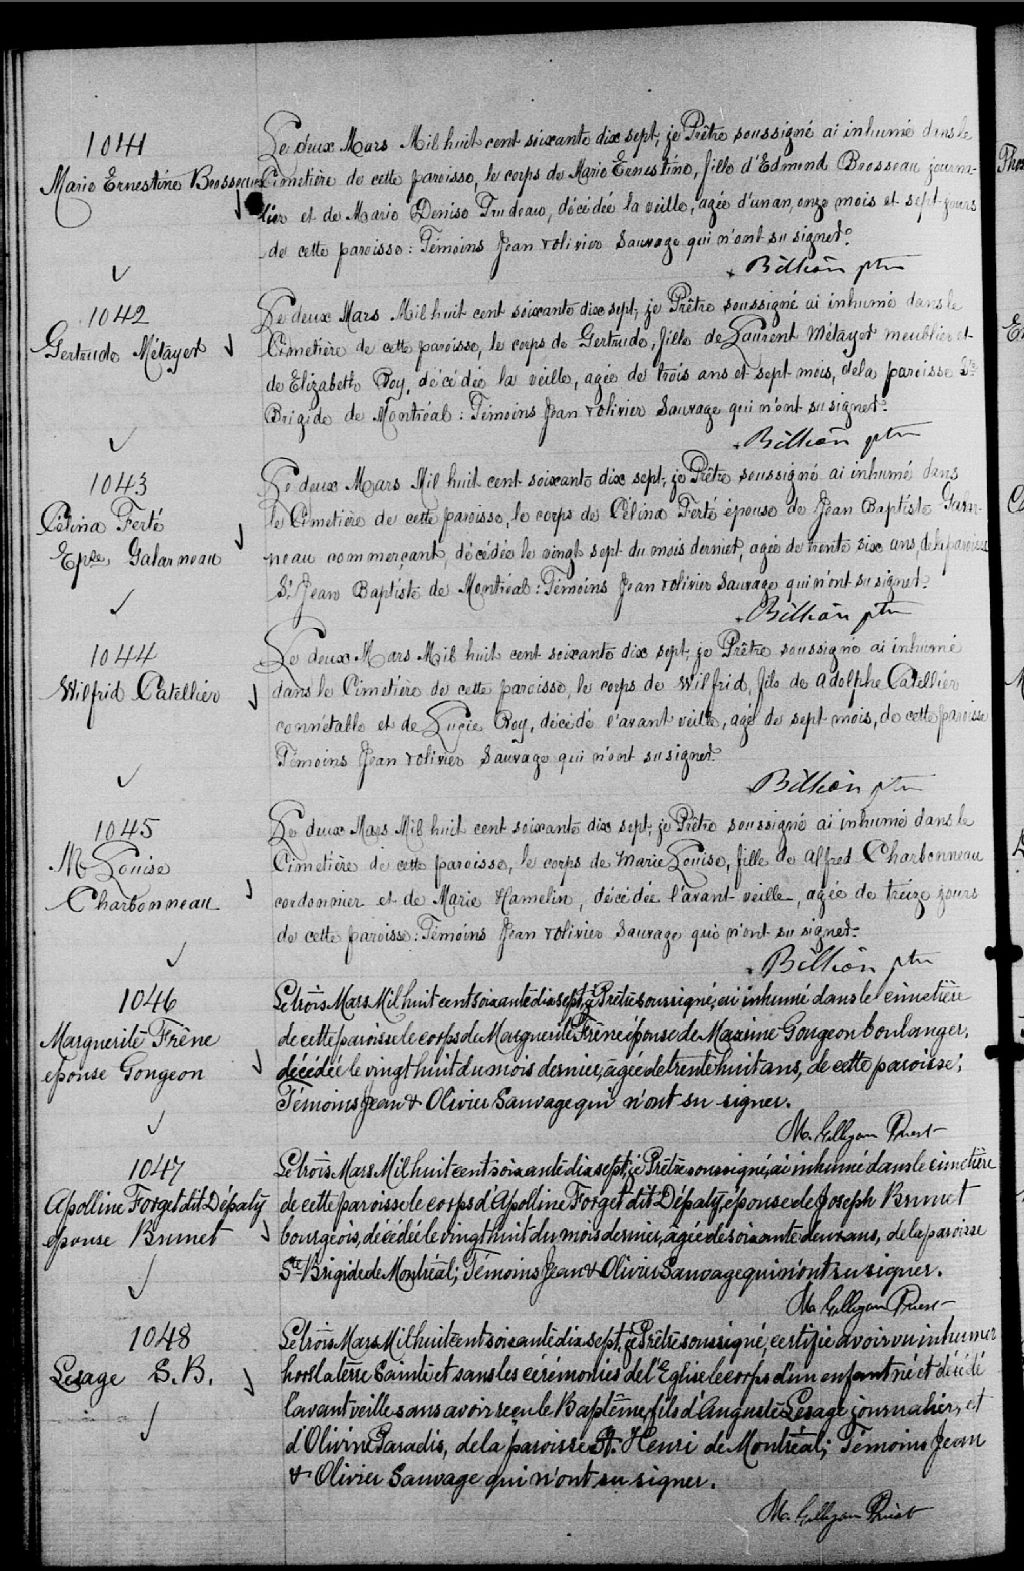 1041
Marie Ernestine Brosseau
Le deux Mars Mil huit cent soixante dix sept, je Prêtre soussigné ai inhumé dans le
Cimetière de cette paroisse, le corps de Marie Ernestine, fille d'Edmond Brosseau journa-
lier et de Marie Denise Trudeau, décédée la veille, agée d'un an, onze mois et sept jours
de cette paroisse : Témoins Jean & Olivier Sauvage qui n'ont su signer.
Billion ptre
1042
Gertrude Métayer
Le deux Mars Mil huit cent soixante dix sept, je Prêtre soussigné ai inhumé dans le
Cimetière de cette paroisse, le corps de Gertrude, fille de Laurent Métayer meublier et
de Elizabeth Roy, décédée la veille, agée de trois ans et sept mois, de la paroisse Ste
Brigide de Montréal : Témoins Jean & Olivier Sauvage qui n'ont su signer.
Billion ptre
1043
Célina Ferté
Epse Galarneau
Le deux Mars Mil huit cent soixante dix sept, je Prêtre soussigné ai inhumé dans
le Cimetière de cette paroisse, le corps de Célina Ferté épouse de Jean Baptiste
neau commerçant, décédée le vingt sept du mois dernier, agée de trente six ans, de la paroisse
St Jean Baptiste de Montréal : Témoins Jean & Olivier Sauvage qui n'ont su signer.
Billion ptre
1044
Wilfrid Catellier
Le deux Mars Mil huit cent soixante dix sept, je Prêtre soussigné ai inhumé
dans le Cimetière de cette paroisse, le corps de Wilfrid, fils de Adolphe Catellier
connétable et de Lucie Roy, décédé l'avant veille, agé de sept mois, de cette paroisse
Témoins Jean & Olivier Sauvage qui n'ont su signer.
Billion ptre
1045
M. Louise
Charbonneau
Le deux Mars Mil huit cent soixante dix sept, je Prêtre soussigné ai inhumé dans le
Cimetière de cette paroisse, le corps de Marie Louise, fille de Alfred Charbonneau
cordonnier et de Marie Hamelin, décédée l'avant-veille, agée de treize jours
de cette paroisse : Témoins Jean & Olivier Sauvage qui n'ont su signer.
Billion ptre
1046
Marguerite Frêne
épouse Gougeon
Le trois Mars Mil huit cent soixante dix sept, je Prêtre soussigné, ai inhumé dans le cimetière
de cette paroisse le corps de Marguerite Frêne épouse de Maxime Gougeon boulanger,
décédée le vingt huit du mois dernier, agée de trente huit ans, de cette paroisse;
Témoins Jean & Olivier Sauvage qui n'ont su signer.
M. Gilligan Priest
1047
Apolline Forget dit Dépaty
épouse Brunet
Le trois Mars Mil huit cent soixante dix sept, je Prêtre soussigné, ai inhumé dans le cimetière
de cette paroisse le corps d'Apolline Forget dit Dépaty, épouse de Joseph Brunet
bourgeois, décédée le vingt huit du mois dernier, agée de soixante deux ans, de la paroisse
Ste Brigide de Montréal; Témoins Jean & Olivier Sauvage qui n'ont su signer.
M. Gilligan Priest
1048
Lesage S.B.
Le trois Mars Mil huit cent soixante dix sept, je Prêtre soussigné, certifie avoir vu inhumer
hors la terre Sainte et sans les cérémonies de l'Eglise le corps d'un enfant né et décédé
l'avant veille sans avoir reçu le Baptême, fils d'Auguste Lesage journalier, et
d'Olivine Paradis, de la paroisse St. Henri de Montréal; Témoins Jean
& Olivier Sauvage qui n'ont su signer.
M. Gilligan Priest